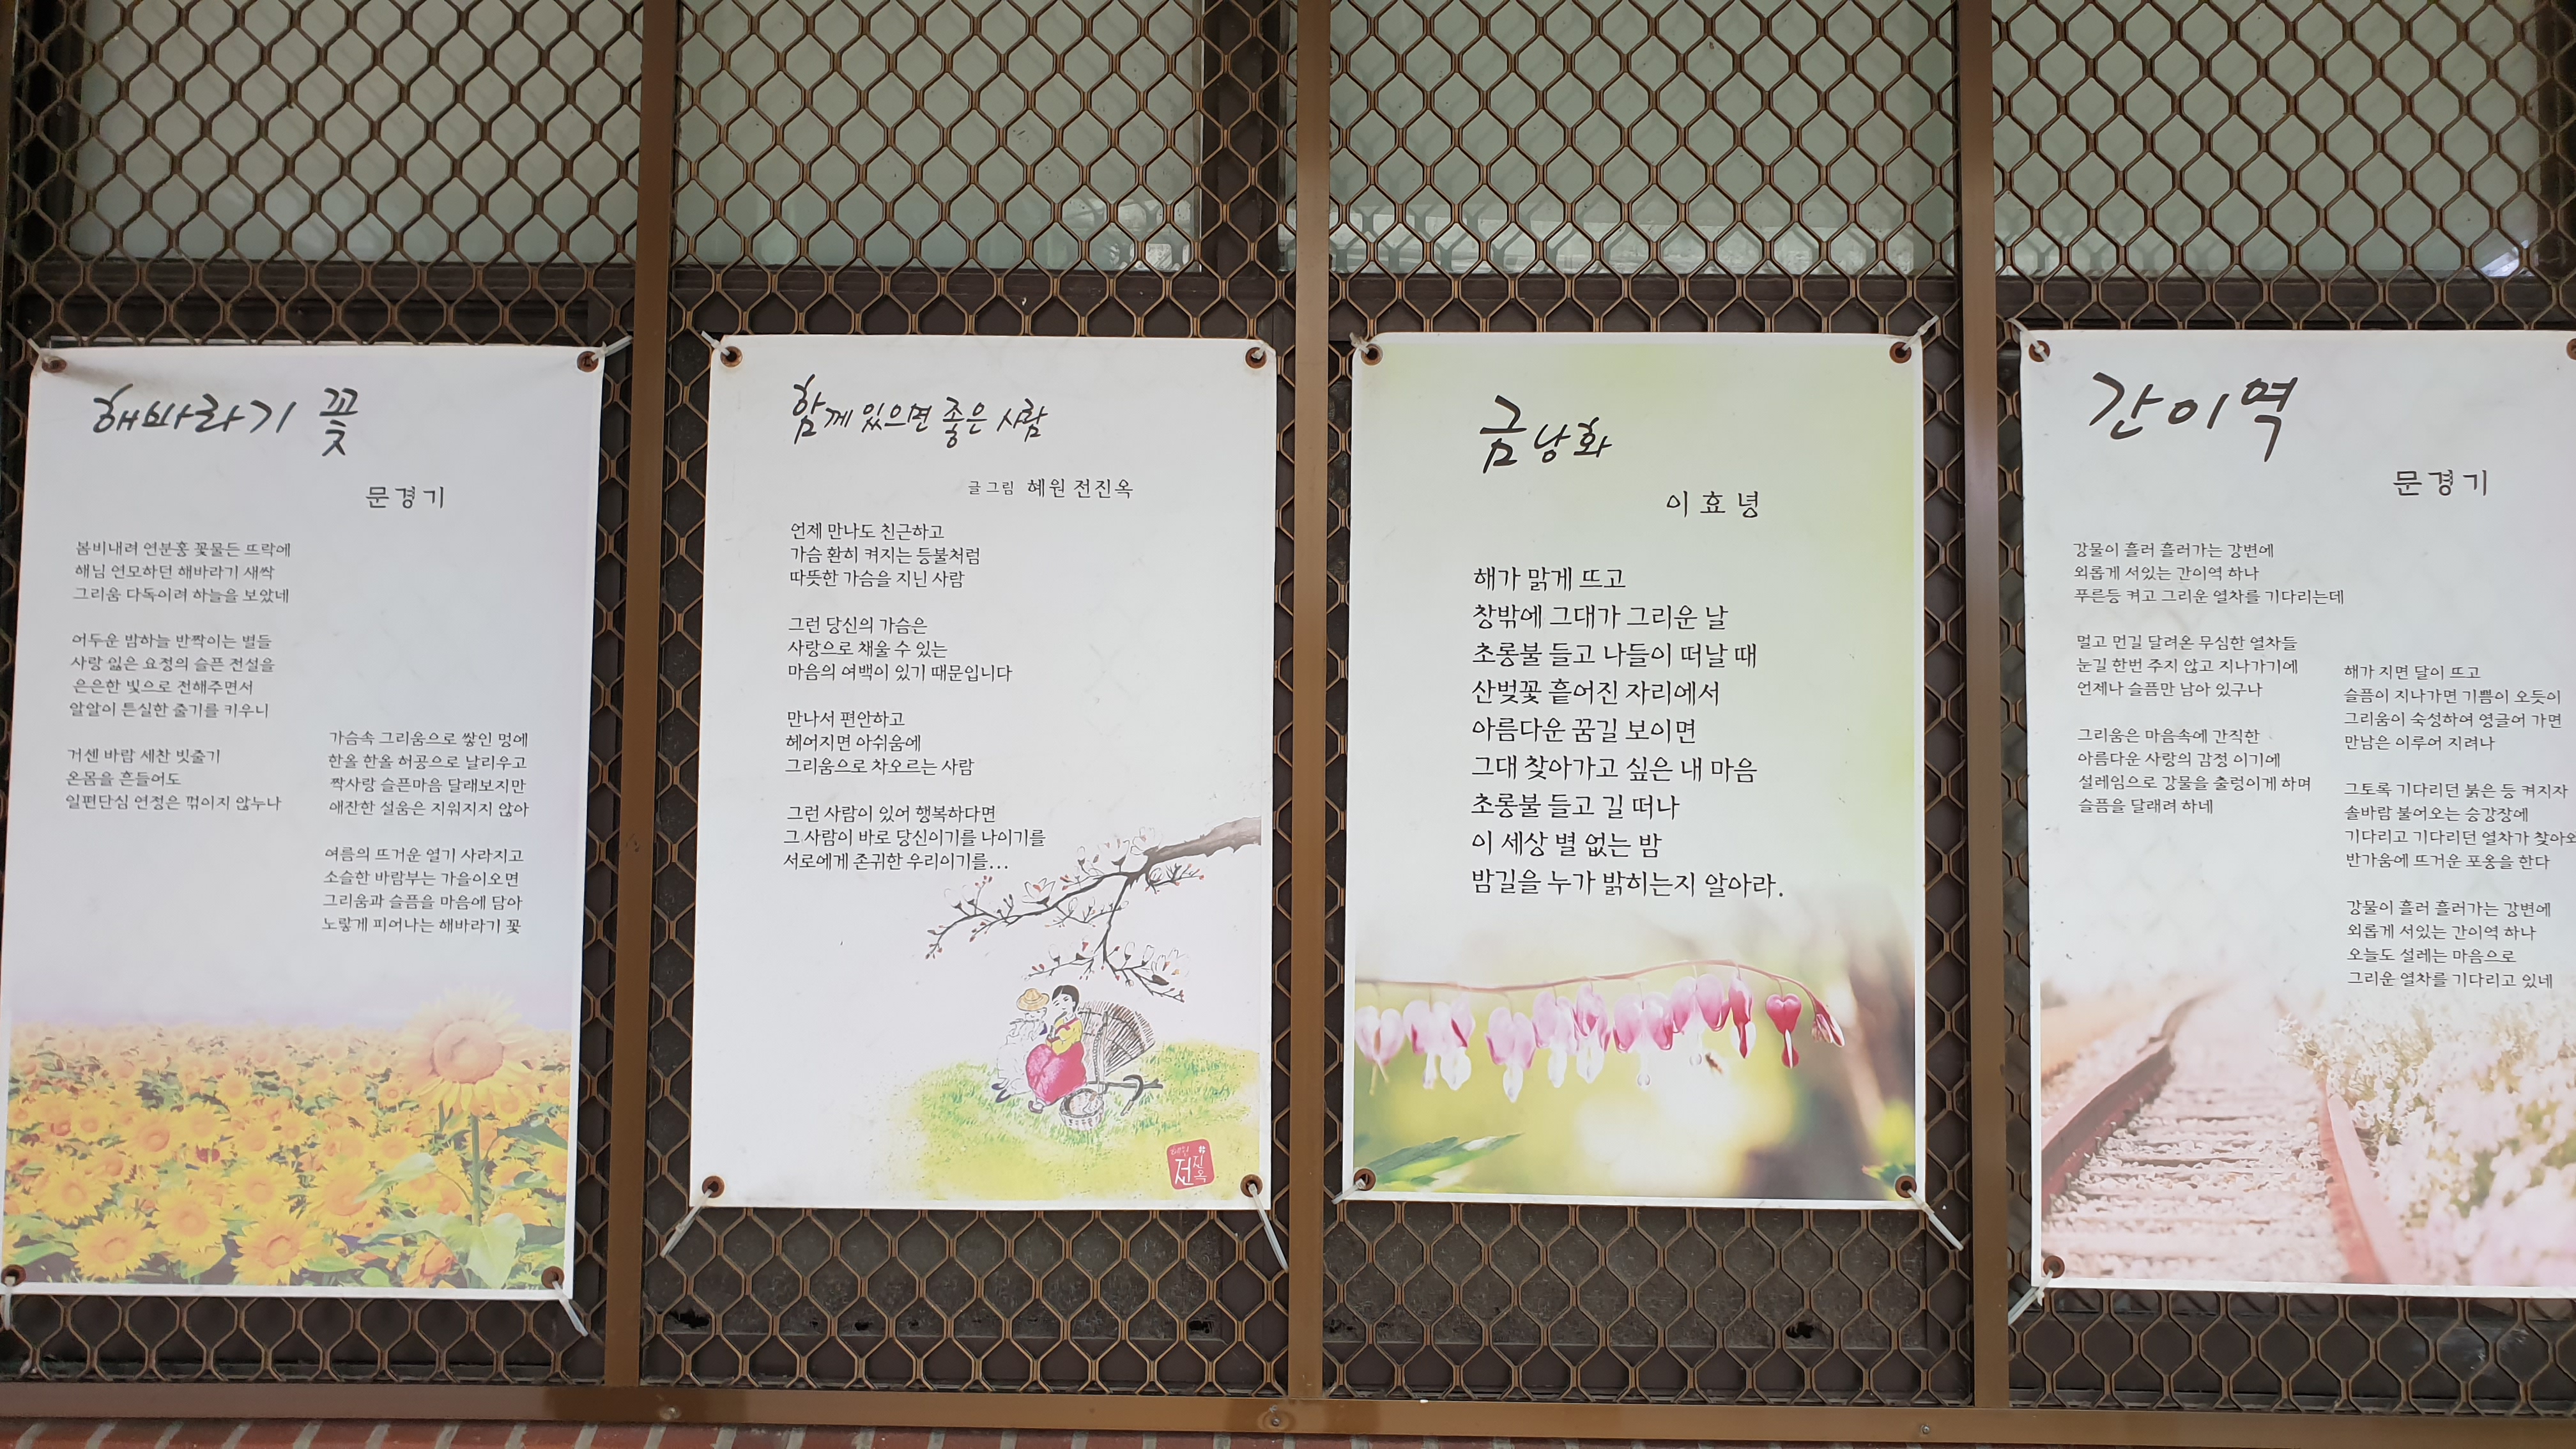 해바라기 꽃
문경기
봄비내려 연분홍 꽃물든 뜨락에
해님 연모하던 해바라기 새싹
그리움 다독이려 하늘을 보았네
어두운 밤하늘 반짝이는 별들
사랑 잃은 요정의 슬픈 전설을
은은한 빛으로 전해주면서
알알이 튼실한 줄기를 키우니
거센 바람 세찬 빗줄기
온몸을 흔들어도
일편단심 연정은 꺾이지 않누나
가슴속 그리움으로 쌓인 멍에
한올 한올 허공으로 날리우고
짝사랑 슬픈마음 달래보지만
애잔한 설움은 지워지지 않아
여름의 뜨거운 열기 사라지고
소슬한 바람부는 가을이오면
그리움과 슬픔을 마음에 담아
노랗게 피어나는 해바라기 꽃
함께 있으면 좋은 사람
글 그림 혜원 전진옥
언제 만나도 친근하고
가슴 환히 켜지는 등불처럼
따뜻한 가슴을 지닌 사람
그런 당신의 가슴은
사랑으로 채울 수 있는
마음의 여백이 있기 때문입니다
만나서 편안하고
헤어지면 아쉬움에
그리움으로 차오르는 사람
그런 사람이 있어 행복하다면
그 사람이 바로 당신이기를 나이기를
서로에게 존귀한 우리이기를...
전진옥
금낭화
이효녕
해가 맑게 뜨고
창밖에 그대가 그리운 날
초롱불 들고 나들이 떠날 때
산벚꽃 흩어진 자리에서
아름다운 꿈길 보이면
그대 찾아가고 싶은 내 마음
초롱불 들고 길 떠나
이 세상 별 없는 밤
밤길을 누가 밝히는지 알아라.
간이역
문경기
강물이 흘러 흘러가는 강변에
외롭게 서있는 간이역 하나
푸른등 켜고 그리운 열차를 기다리는데
멀고 먼길 달려온 무심한 열차들
눈길 한번 주지 않고 지나가기에
언제나 슬픔만 남아 있구나
그리움은 마음속에 간직한
아름다운 사랑의 감정 이기에
설레임으로 강물을 출렁이게 하며
슬픔을 달래려 하네
해가 지면 달이 뜨고
슬픔이 지나가면 기쁨이 오듯이
그리움이 숙성하여 영글어 가면
만남은 이루어 지려나
그토록 기다리던 붉은 등 켜지자
솔바람 불어오는 승강장에
기다리고 기다리던 열차가
반가움에 뜨거운 포옹을 한다
강물이 흘러 흘러가는 강변에
외롭게 서있는 간이역 하나
오늘도 설레는 마음으로
그리운 열차를 기다리고 있네